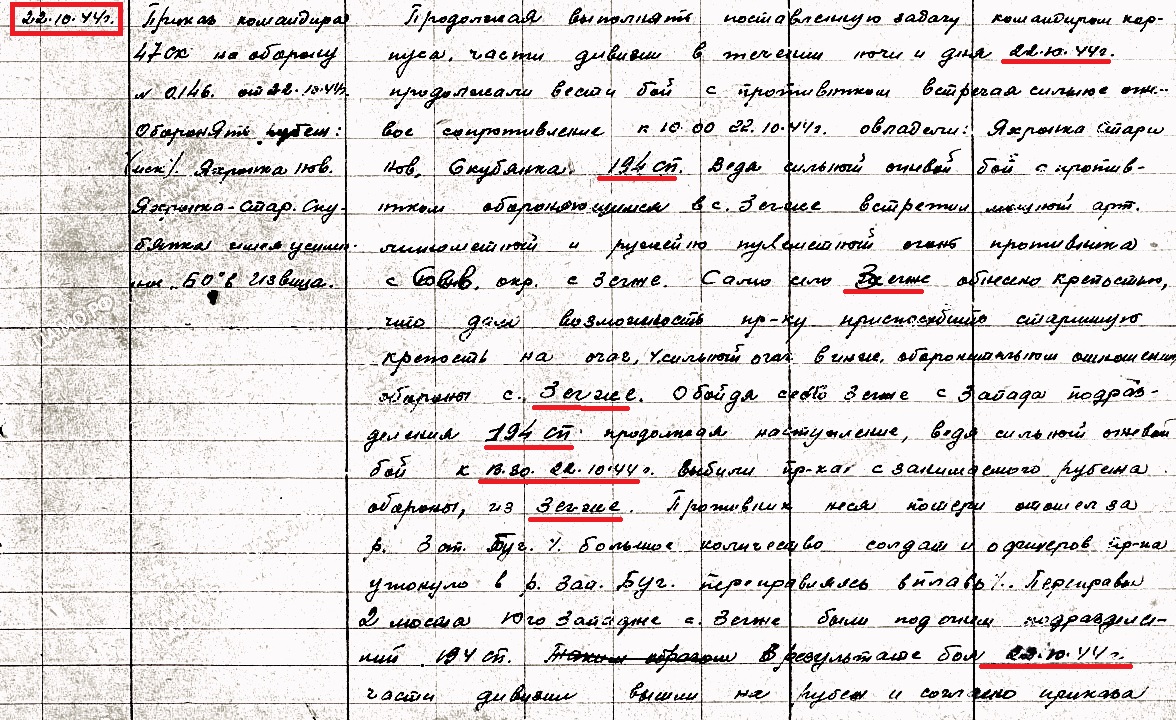 22.10.44г.
Приказ командира
47СК на оборону
N 0146. от 22.10.44г.
Оборонять рубеж:
(иск/. Яхронка Нов.
Яхронка-Стар. Ску-
бянка имея усилен-
"50° в Извица.
Продолжая выполнять поставленную задачу командиром кор-
пуса, части дивизии в течении ночи и дня 22.10.44г.
продолжали вести бой с противником встречая сильное огне-
вое сопротивление к 10.00 22.10.44г. овладели: Яхронка Стары
Нов, Скубянка. 194 сп. Ведя сильный огневой бой с против-
ником обороняющимся в с. Зегже встретил мощный арт.
минометный и ружейно пулеметный огонь противника
с окр. с Зегже. Само село Зегже обнесено крепостью,
что дал возможность пр-ку приспособить старинную
крепость на очаг, сильный очаг в оборонительном отношении
обороны с. Зегже. Обойдя село Зегже с Запада подраз-
деления 194 сп. продолжая наступление, ведя сильный огневой
бой к 18.30. 22.10.44г. выбили пр-ка с занимаемого рубежа
обороны, из Зегже. Противник неся потери отошел за
р. Зап. Буг. /. большое количество солдат и офицеров пр-ка
утонуло в р. Зап. Буг. переправляясь вплавь/. Переправы
2 моста Юго Западнее с. Зегже были под огнем подразделе-
ний 194 сп. Таким образом В результате боя 22.10.44г.
части дивизии вышли на рубеж и согласно приказа